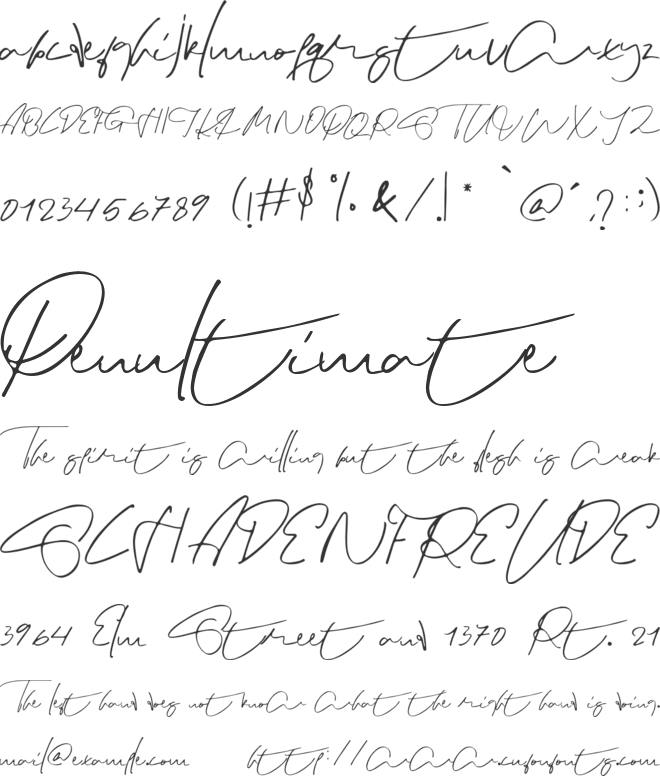 abcdefghijklmnopqrstuvwxyz
ABCDEFGHIJKLMNOPQRSTUVWXYZ
0123456789 (!#$%.&/.|* `@´,?:;)
Penultimate
The spirit is willing but the flesh is weak
SCHADENFREUDE
3964 Elm Street and 1370 Rt. 21
The left hand does not know what the right hand is doing.
mail@example.com http://www.cufonfonts.com